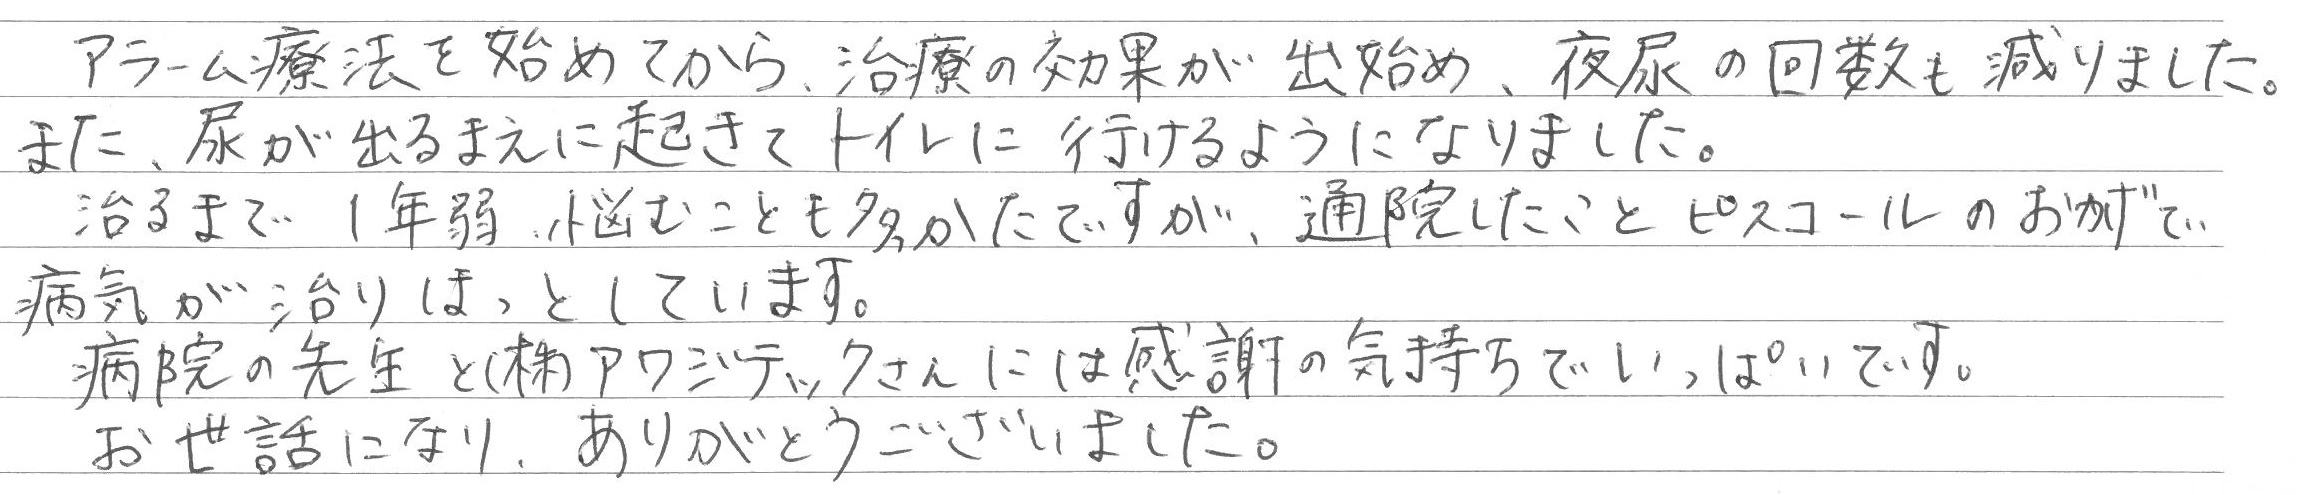 アラーム療法を始めてから、治療の効果が出始め、夜尿の回数も減りました。
また、尿が出るまえに起きてトイレに行けるようになりました。
治るまで1年弱、悩むことも多かたですが、通院したこととピスコールのおかげで
病気が治りほっとしています。
病院の先生と(株)アワジテックさんには感謝の気持ちでいっぱいです。
お世話になり、ありがとうございました。